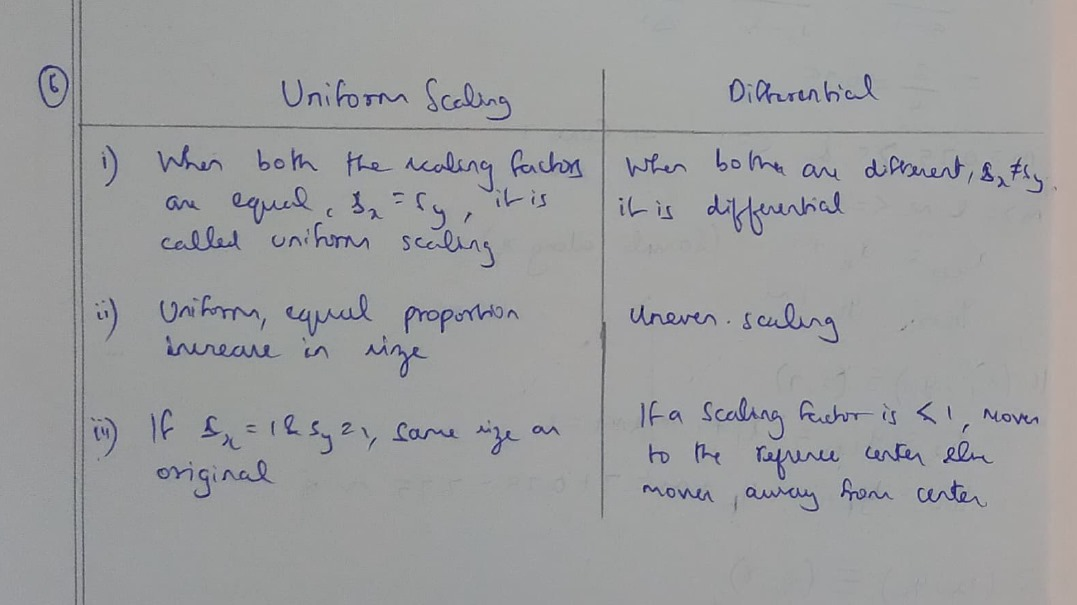 6
Uniform Scaling
Differential
i) When both the scaling factors
are equal, Sx = Sy, it is
called uniform scaling
When both are different, Sx ≠ Sy.
it is differential
ii) Uniform, equal proportion
increase in size
Uneven. scaling
iii) If Sx = 1 & Sy = 1, same size as
original
If a scaling factor is < 1, moves
to the refrence center else
moves, away from center